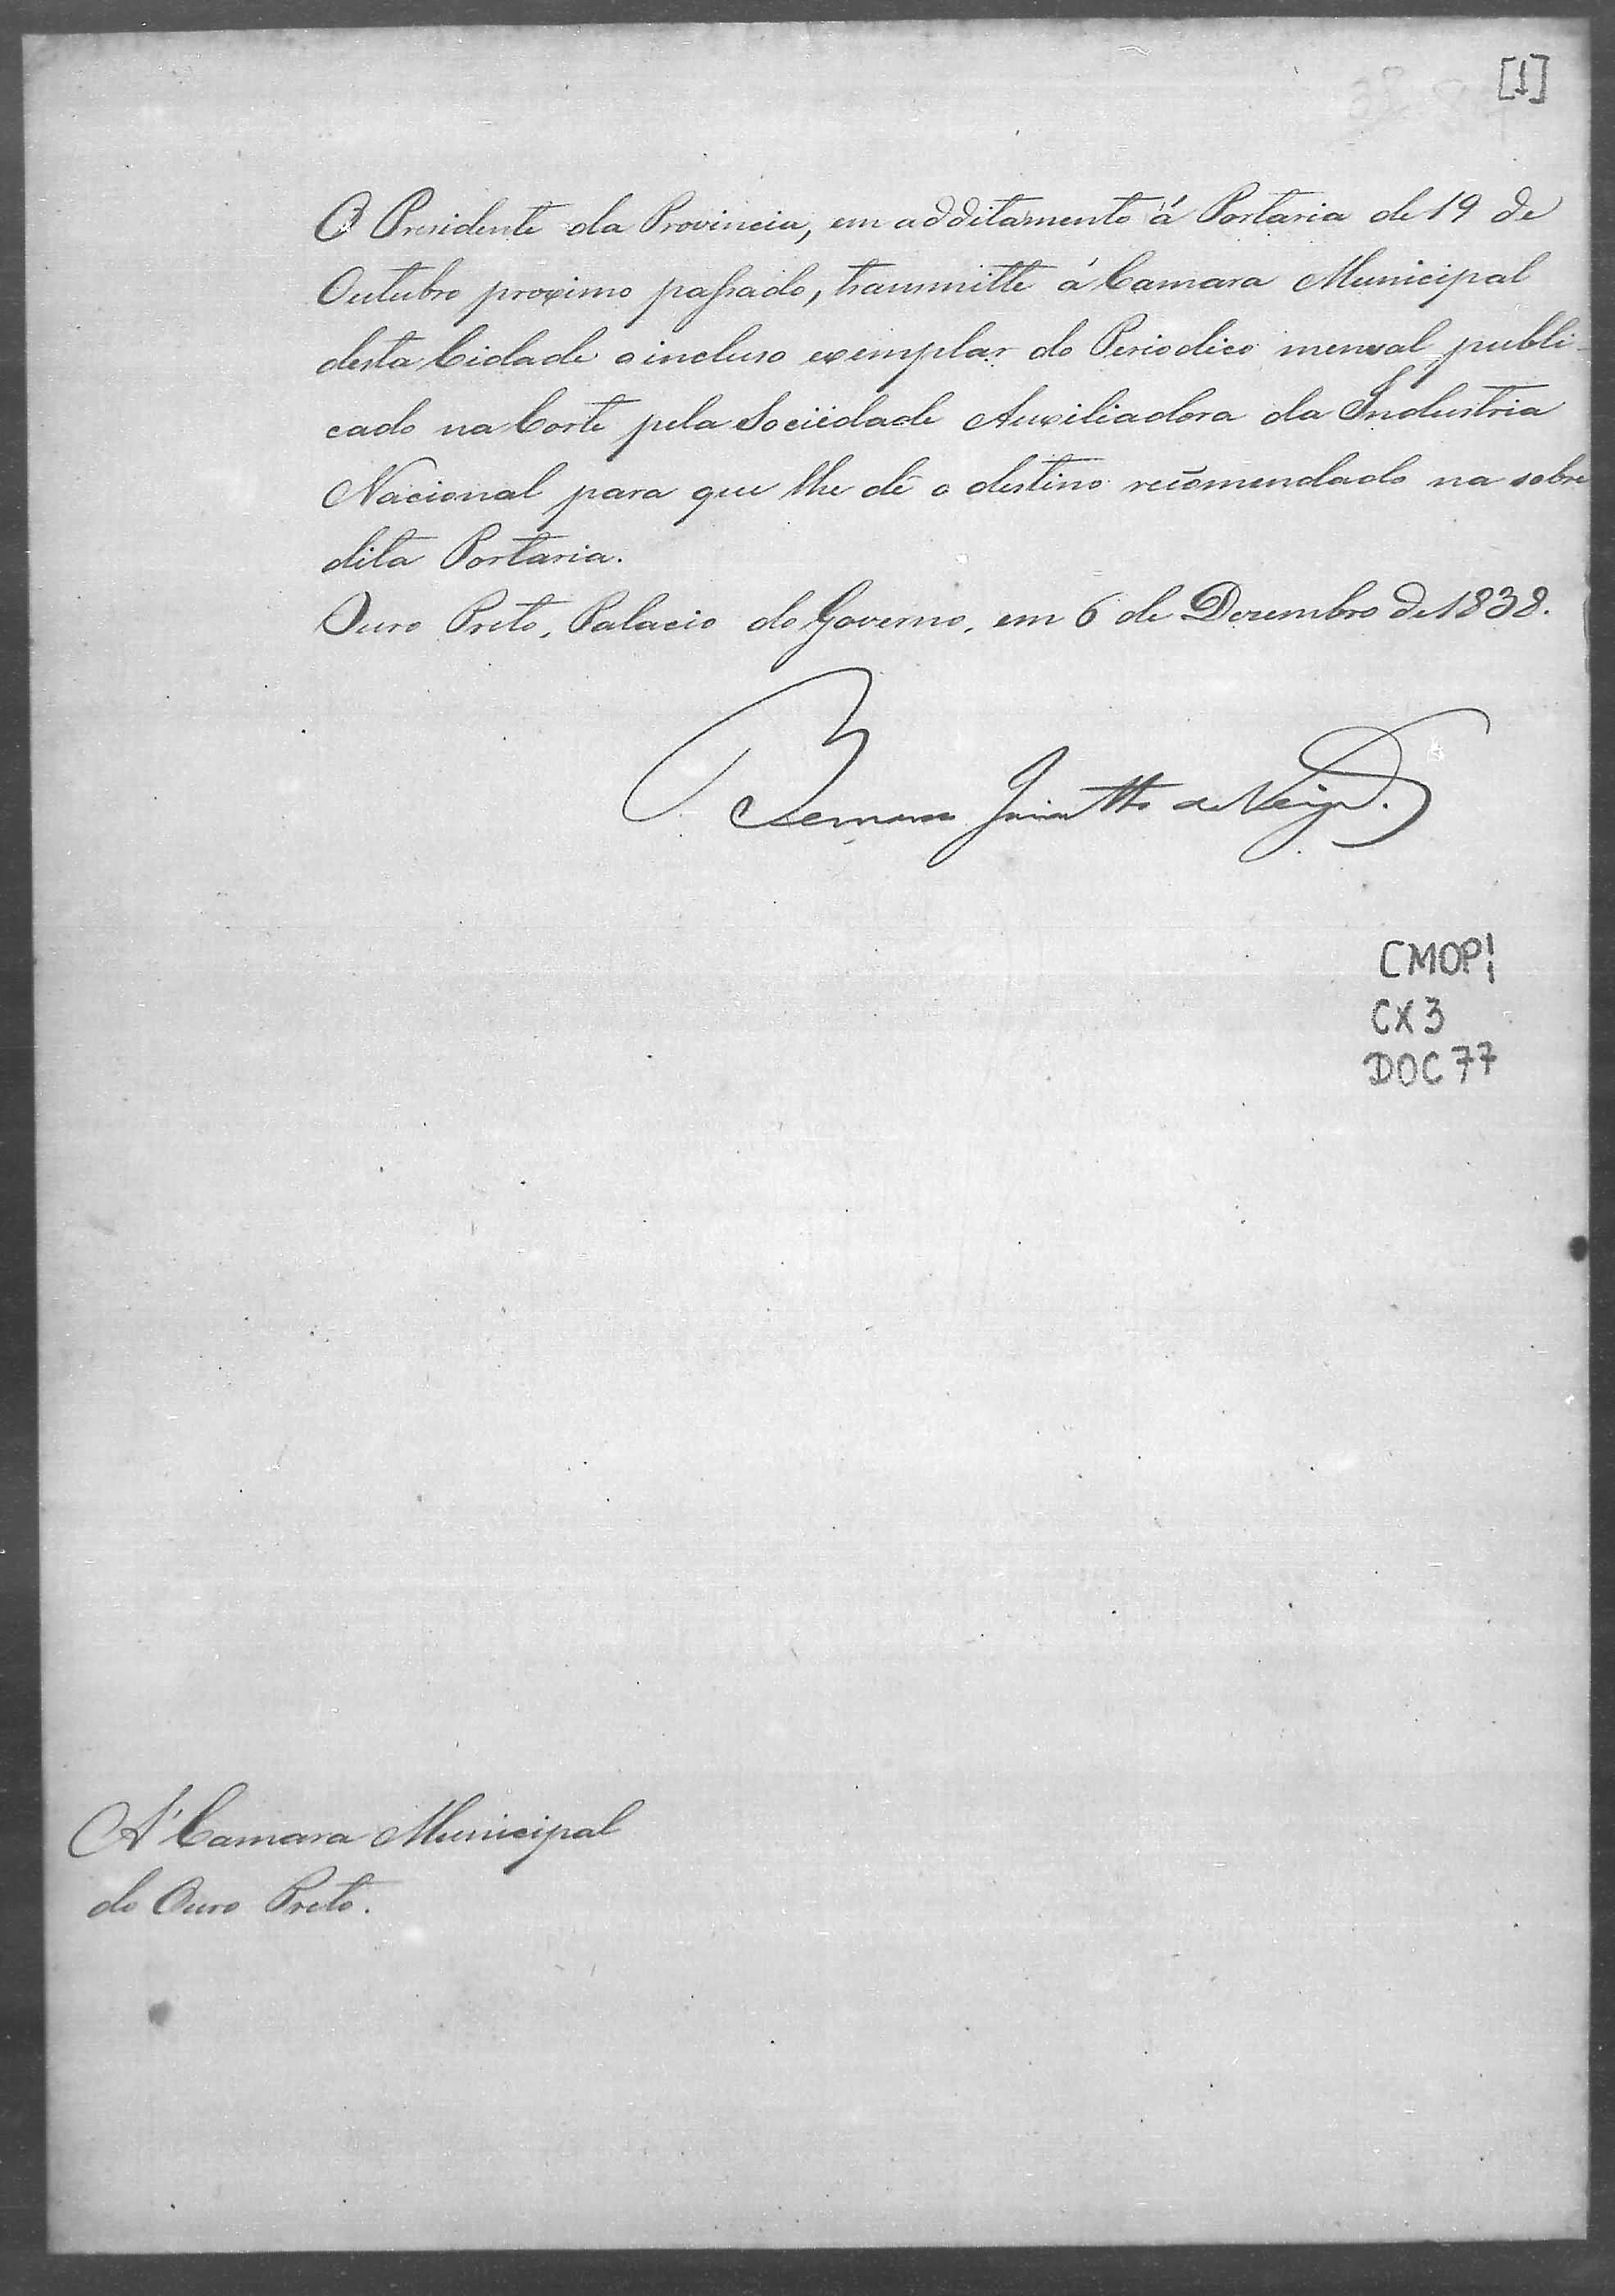 [1]
O Presidente da Provincia, em additamento á Portaria de 19 de
Outubro proximo passado, transmitte á Camara Municipal
desta Cidade o incluso exemplar do Periodico mensal publi-
cado na Corte pela Sociedade Auxiliadora da Industria
Nacional para que lhe dê o destino recomendado na sobre
dita Portaria.
Ouro Preto, Palacio do Governo, em 6 de Dezembro de 1838.
Bernardo Jacintho da Veiga.
CMOP
CX 3
DOC 77
A' Camara Municipal
do Ouro Preto.